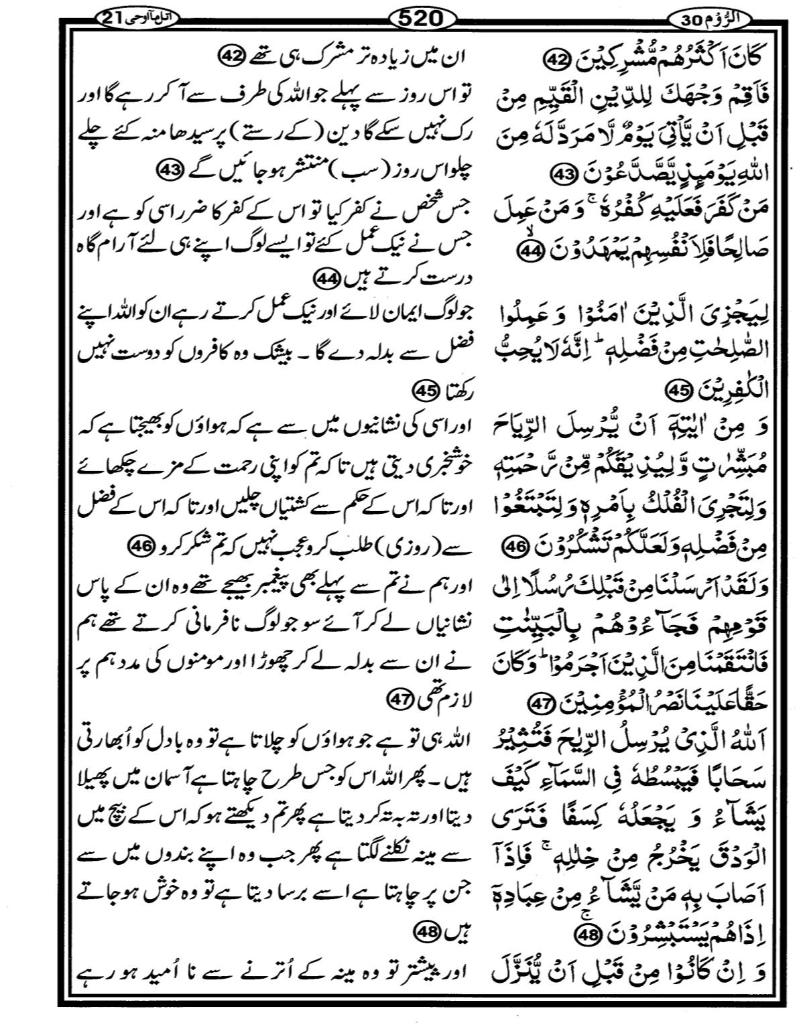 الرُّوْم 30
520
اتل مآ اوحی 21
كَانَ اَكْثَرُهُمْ مُّشْرِكِيْنَ 42
فَاَقِمْ وَجْهَكَ لِلدِّيْنِ الْقَيِّمِ مِنْ
قَبْلِ اَنْ يَّاْتِيَ يَوْمٌ لَّا مَرَدَّ لَهٗ مِنَ
اللّٰهِ يَوْمَىِٕذٍ يَّصَّدَّعُوْنَ 43
مَنْ كَفَرَ فَعَلَيْهِ كُفْرُهٗ ۚ وَ مَنْ عَمِلَ
صَالِحًا فَلِاَنْفُسِهِمْ يَمْهَدُوْنَ ۙ 44
لِيَجْزِيَ الَّذِيْنَ اٰمَنُوْا وَ عَمِلُوا
الصّٰلِحٰتِ مِنْ فَضْلِهٖ ؕ اِنَّهٗ لَا يُحِبُّ
الْكٰفِرِيْنَ 45
وَ مِنْ اٰيٰتِهٖٓ اَنْ يُّرْسِلَ الرِّيَاحَ
مُبَشِّرٰتٍ وَّ لِيُذِيْقَكُمْ مِّنْ رَّحْمَتِهٖ
وَ لِتَجْرِيَ الْفُلْكُ بِاَمْرِهٖ وَ لِتَبْتَغُوْا
مِنْ فَضْلِهٖ وَ لَعَلَّكُمْ تَشْكُرُوْنَ 46
وَ لَقَدْ اَرْسَلْنَا مِنْ قَبْلِكَ رُسُلًا اِلٰى
قَوْمِهِمْ فَجَآءُوْهُمْ بِالْبَيِّنٰتِ
فَانْتَقَمْنَا مِنَ الَّذِيْنَ اَجْرَمُوْا ؕ وَ كَانَ
حَقًّا عَلَيْنَا نَصْرُ الْمُؤْمِنِيْنَ 47
اَللّٰهُ الَّذِيْ يُرْسِلُ الرِّيٰحَ فَتُثِيْرُ
سَحَابًا فَيَبْسُطُهٗ فِي السَّمَآءِ كَيْفَ
يَشَآءُ وَ يَجْعَلُهٗ كِسَفًا فَتَرَى
الْوَدْقَ يَخْرُجُ مِنْ خِلٰلِهٖ ۚ فَاِذَآ
اَصَابَ بِهٖ مَنْ يَّشَآءُ مِنْ عِبَادِهٖٓ
اِذَا هُمْ يَسْتَبْشِرُوْنَ ۚ 48
وَ اِنْ كَانُوْا مِنْ قَبْلِ اَنْ يُّنَزَّلَ
ان میں زیادہ تر مشرک ہی تھے 42
تو اس روز سے پہلے جو اللہ کی طرف سے آ کر رہے گا اور
رک نہیں سکے گا دین (کے رستے) پر سیدھا منہ کئے چلے
چلو اس روز (سب) منتشر ہو جائیں گے 43
جس شخص نے کفر کیا تو اس کے کفر کا ضرر اسی کو ہے اور
جس نے نیک عمل کئے تو ایسے لوگ اپنے ہی لئے آرام گاہ
درست کرتے ہیں 44
جو لوگ ایمان لائے اور نیک عمل کرتے رہے ان کو اللہ اپنے
فضل سے بدلہ دے گا ۔ بیشک وہ کافروں کو دوست نہیں
رکھتا 45
اور اسی کی نشانیوں میں سے ہے کہ ہواؤں کو بھیجتا ہے کہ
خوشخبری دیتی ہیں تا کہ تم کو اپنی رحمت کے مزے چکھائے
اور تا کہ اس کے حکم سے کشتیاں چلیں اور تا کہ اس کے فضل
سے (روزی) طلب کرو عجب نہیں کہ تم شکر کرو 46
اور ہم نے تم سے پہلے بھی پیغمبر بھیجے تھے وہ ان کے پاس
نشانیاں لے کر آئے سو جو لوگ نافرمانی کرتے تھے ہم
نے ان سے بدلہ لے کر چھوڑا اور مومنوں کی مدد ہم پر
لازم تھی 47
اللہ ہی تو ہے جو ہواؤں کو چلاتا ہے تو وہ بادل کو اُبھارتی
ہیں ۔ پھر اللہ اس کو جس طرح چاہتا ہے آسمان میں پھیلا
دیتا اور تہ بہ تہ کر دیتا ہے پھر تم دیکھتے ہو کہ اس کے بیچ میں
سے مینہ نکلنے لگتا ہے پھر جب وہ اپنے بندوں میں سے
جن پر چاہتا ہے اسے برسا دیتا ہے تو وہ خوش ہو جاتے
ہیں 48
اور پیشتر تو وہ مینہ کے اُترنے سے نا اُمید ہو رہے